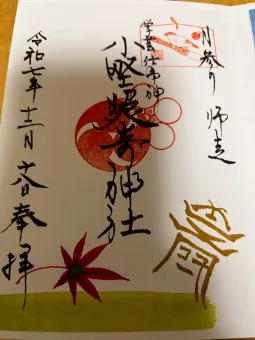 月参り 師走
学芸仕事神
小野照崎神社
令和七年十二月
奉拝